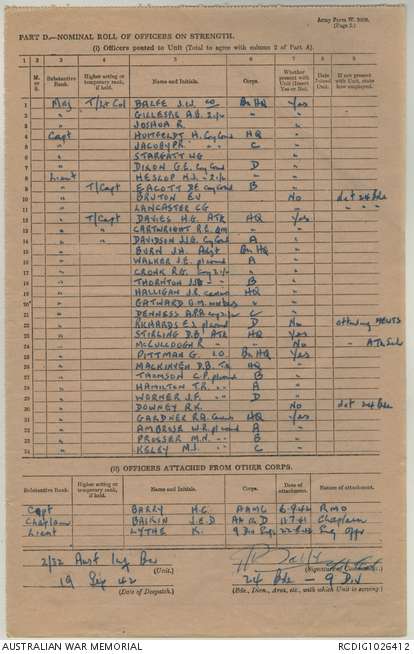 Army Form W. 3009.
(Page 2.)
PART D.—NOMINAL ROLL OF OFFICERS ON STRENGTH.
(i) Officers posted to Unit (Total to agree with column 2 of Part A).
1 2 3 4 5 6 7 8 9
M. or S. Substantive Rank. Higher acting or temporary rank, if held. Name and Initials. Corps. Whether present with Unit (Insert Yes or No). Date Joined Unit. If not present with Unit, state how employed.
1 Maj T/Lt Col BALFE J.W. CO Bn HQ Yes
2 " GILLESPIE A.B. 2i/c " "
3 " JOSHUA R. " "
4 Capt HUITFELDT H. Coy Comd HQ "
5 " JACOBY P.R. " C "
6 " STARGATT WG " "
7 " DIXON G.E. Coy Comd D "
8 Lieut HESLOP H.J. " 2i/c " "
9 " T/Capt EACOTT DE Coy Comd B "
10 " BRUTON EV No det 24 Bde
11 " LANCASTER CG " " "
12 " T/Capt DAVIES H.G. ATR HQ Yes
13 " " CARTWRIGHT R.E. QM " "
14 " " DAVIDSON J.J.G. Coy Comd A "
15 " BURN J.H. Adjt Bn HQ "
16 " WALKER J.E. pl comd A "
17 " CRONK R.G. Coy 2i/c " "
18 " THORNTON J.B. B "
19 " HALLIGAN J.R. HQ "
GATWARD G.M. " "
DENNESS A.P.A. coy 2i/c C "
22 " RICHARDS E.J. pl comd D No attending
23 " STIRLING D.B. ATR HQ Yes
24 " McCULLOUGH R No " A Tk Sch
" PITTMAN G. I.O. Bn HQ Yes
" MACKINVEN D.B. HQ "
" THOMSON C.P. pl comd B "
" HAMILTON T.R. " " A "
" WORNER J.F. " D "
" DOWNEY R.K. No det 24 Bde
" GARDNER R.Q. HQ Yes
" AMBROSE W.R. pl comd A "
" PROSSER M.N. " " B "
34 " KELLY M.J. " " C "
(ii) OFFICERS ATTACHED FROM OTHER CORPS.
Substantive Rank. Higher acting or temporary rank, if held. Name and Initials. Corps. Date of attachment. Nature of attachment.
Capt BARRY H.G. AAMC 6.9.42 RMO
Chaplain J.E.D 11.7.41 Chaplain
Lieut LYTHE K. 9 Div Sigs Sig Offr
2/32 Aust Inf Bn
(Unit.)
(Signature of Commander.)
19 Sep 42
(Date of Despatch.)
24 Bde — 9 Div
(Bde., Divn., Area, etc., with which Unit is serving)
AUSTRALIAN WAR MEMORIAL
RCDIG1026412